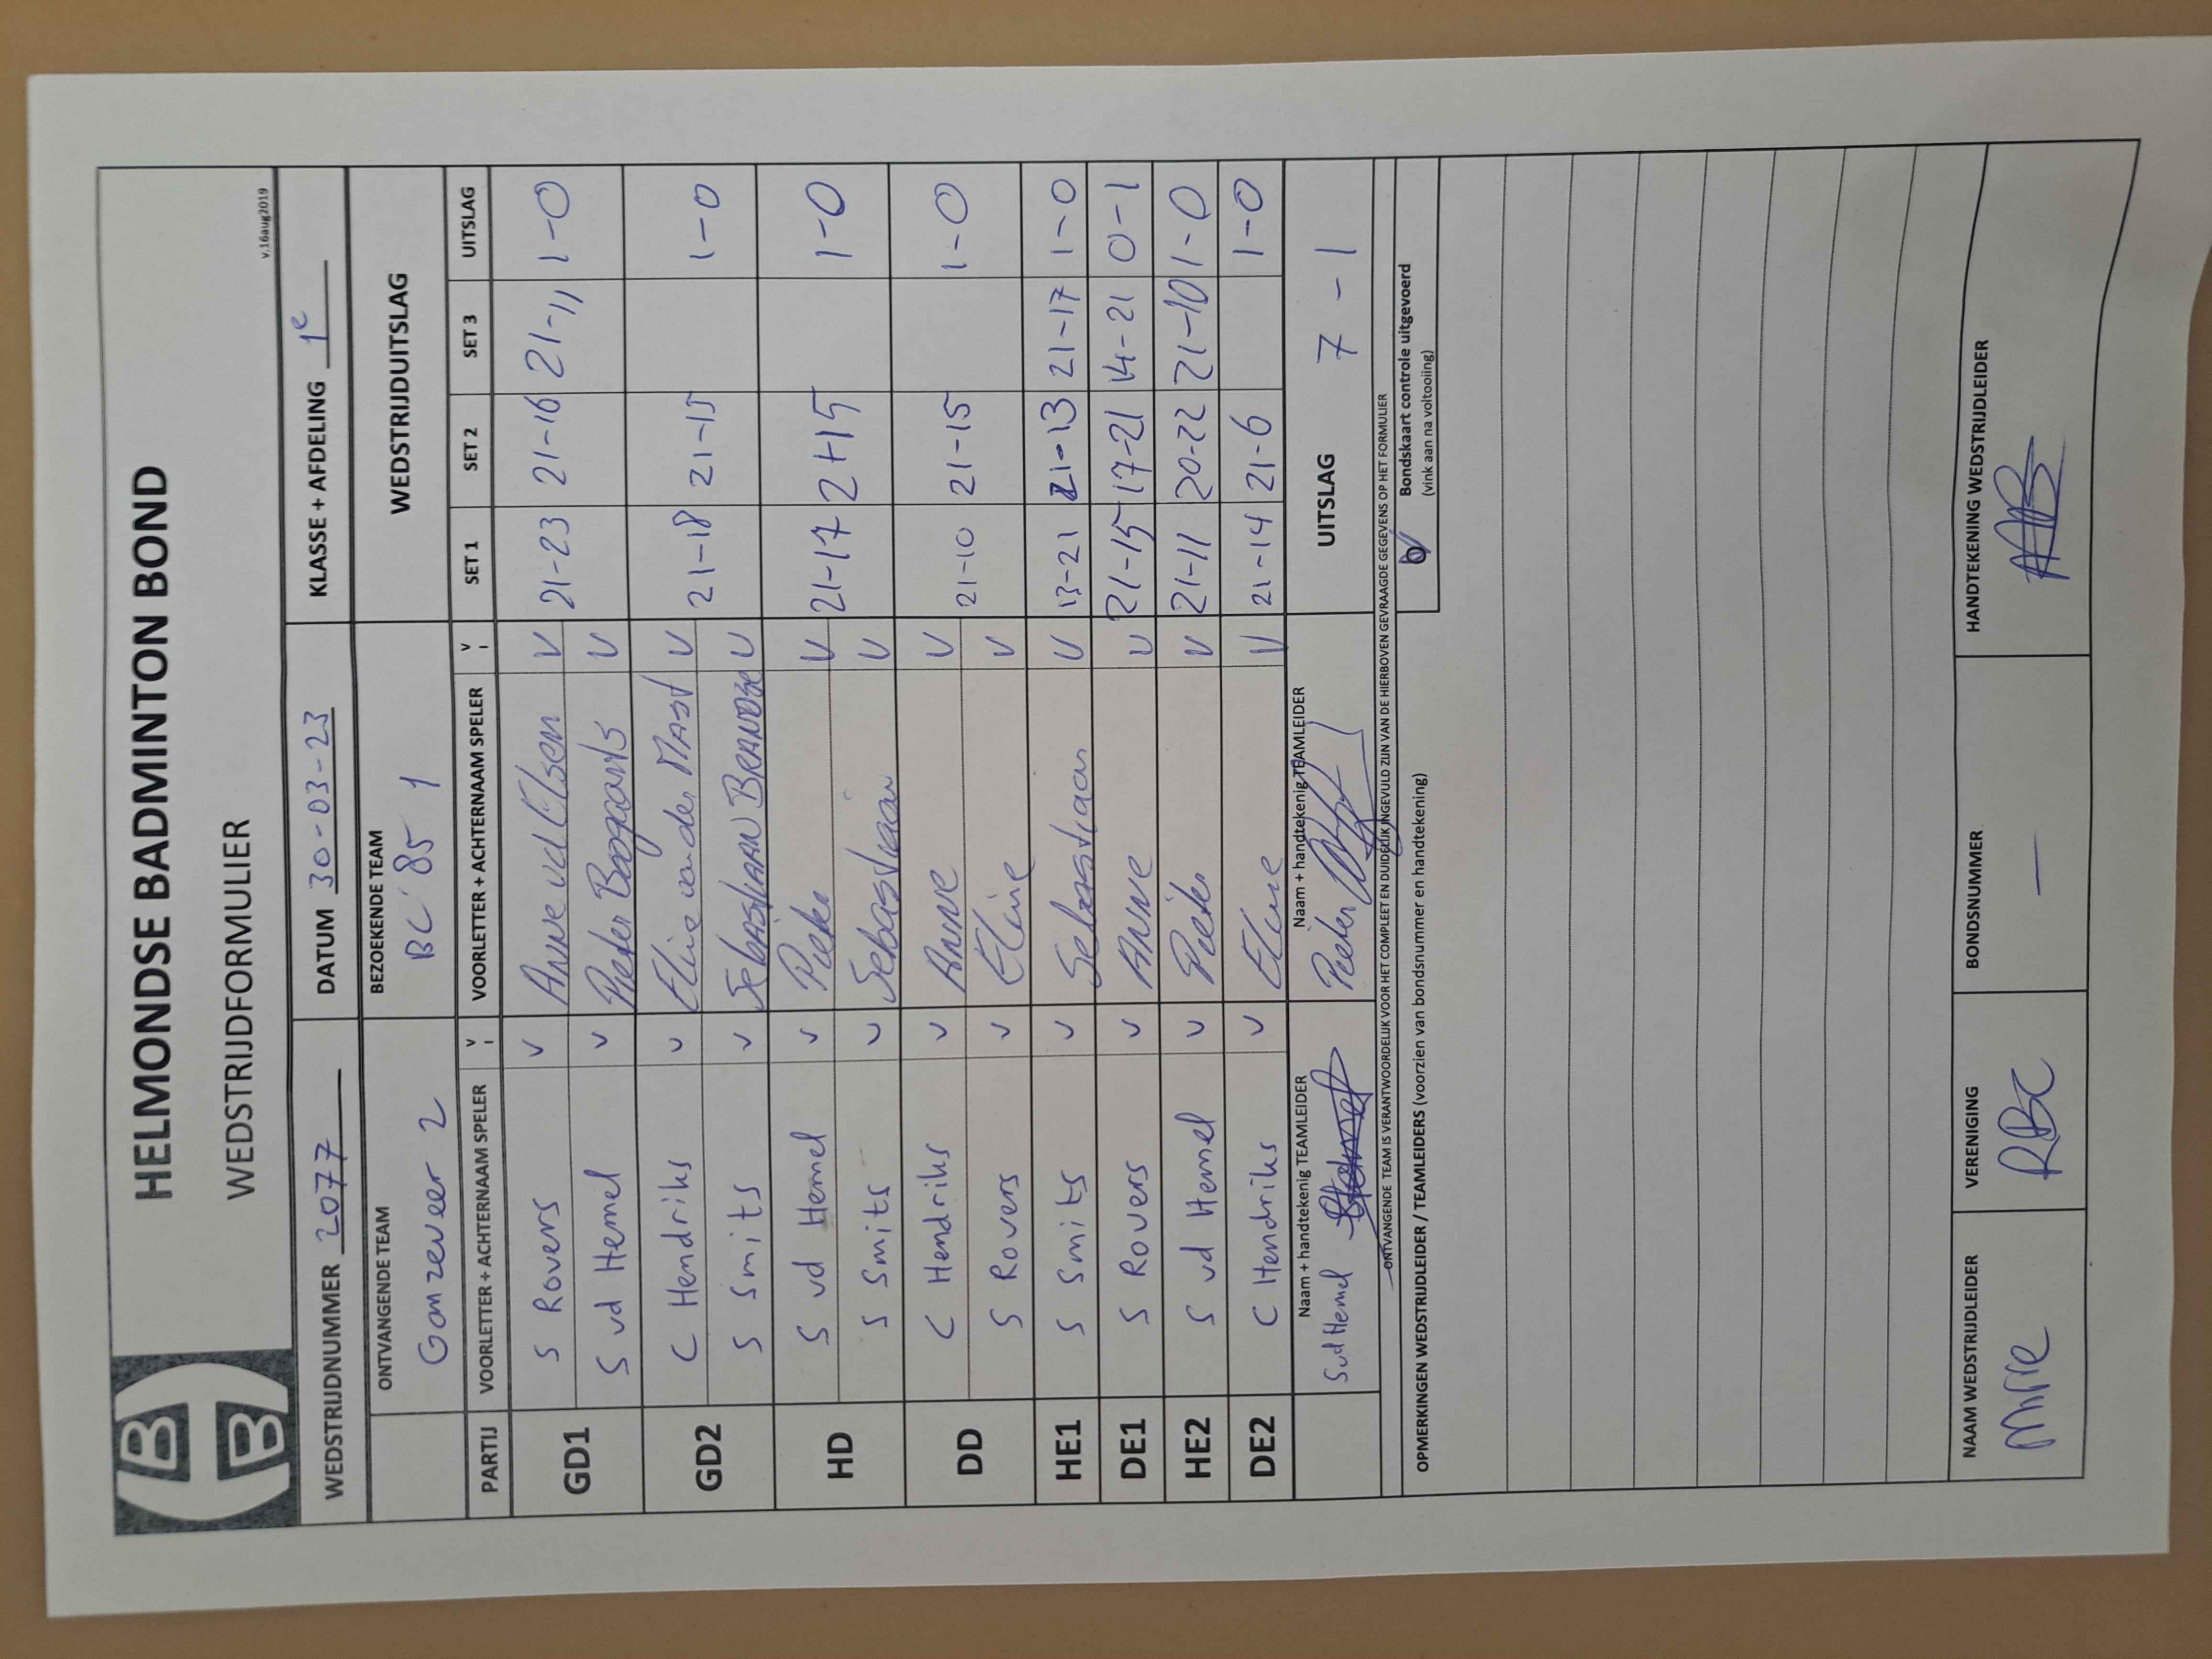 HELMONDSE BADMINTON BOND
WEDSTRIJDFORMULIER
v.16aug2019
WEDSTRIJDNUMMER 2077 DATUM 30-03-23 KLASSE + AFDELING 1e
ONTVANGENDE TEAM BEZOEKENDE TEAM WEDSTRIJDUITSLAG
Ganzeveer 2 BC '85 1
PARTIJ VOORLETTER + ACHTERNAAM SPELER V VOORLETTER + ACHTERNAAM SPELER V SET 1 SET 2 SET 3 UITSLAG
GD1 S Rovers V Anne vd Elsen V 21-23 21-16 21-11 1-0
S vd Hemel V Pieter Bogaards V
GD2 C Hendriks V Eline van der Mast V 21-18 21-15 1-0
S Smits V Sebastiaan BRANDSE V
HD S vd Hemel V Pieter V 21-17 21-15 1-0
S Smits V Sebastiaan V
DD C Hendriks V Anne V 21-10 21-15 1-0
S Rovers V Eline V
HE1 S Smits V Sebastiaan V 13-21 21-13 21-17 1-0
DE1 S Rovers V Anne V 21-15 17-21 14-21 0-1
HE2 S vd Hemel V Pieter V 21-11 20-22 21-10 1-0
DE2 C Hendriks V Eline V 21-14 21-6 1-0
Naam + handtekenig TEAMLEIDER Naam + handtekenig TEAMLEIDER UITSLAG 7 - 1
S vd Hemel Pieter
ONTVANGENDE TEAM IS VERANTWOORDELIJK VOOR HET COMPLEET EN DUIDELIJK INGEVULD ZIJN VAN DE HIERBOVEN GEVRAAGDE GEGEVENS OP HET FORMULIER
OPMERKINGEN WEDSTRIJDLEIDER / TEAMLEIDERS (voorzien van bondsnummer en handtekening)
O Bondskaart controle uitgevoerd
(vink aan na voltooiing)
NAAM WEDSTRIJDLEIDER VERENIGING BONDSNUMMER HANDTEKENING WEDSTRIJDLEIDER
RBC —